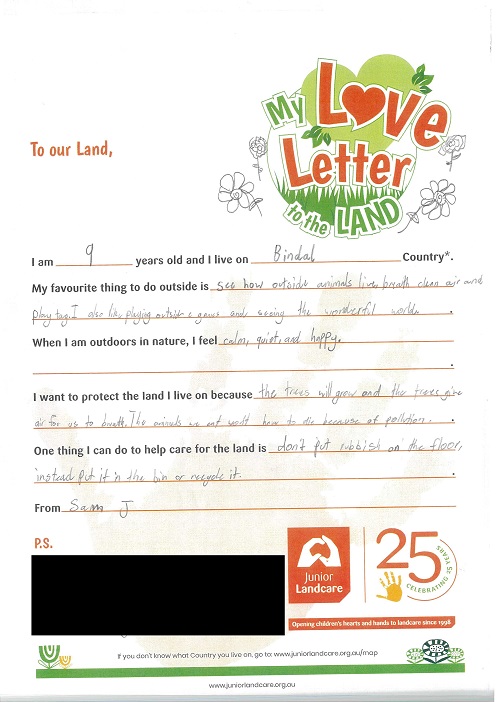 My Love
Letter
to the LAND
To our Land,
I am 9 years old and I live on Bindal Country*.
My favourite thing to do outside is see how outside animals live, breath clean air and
play tag. I also like playing outside games and seeing the wonderful world.
When I am outdoors in nature, I feel calm, quiet, and happy.
.
I want to protect the land I live on because the trees will grow and the trees give
air for us to breath. The animals we eat won't have to die because of pollution.
One thing I can do to help care for the land is don't put rubbish on the floor,
instead put it in the bin or recycle it.
From Sam J
P.S.
Junior
Landcare
25
CELEBRATING 25 YEARS
Opening children's hearts and hands to landcare since 1998
If you don't know what Country you live on, go to: www.juniorlandcare.org.au/map
www.juniorlandcare.org.au